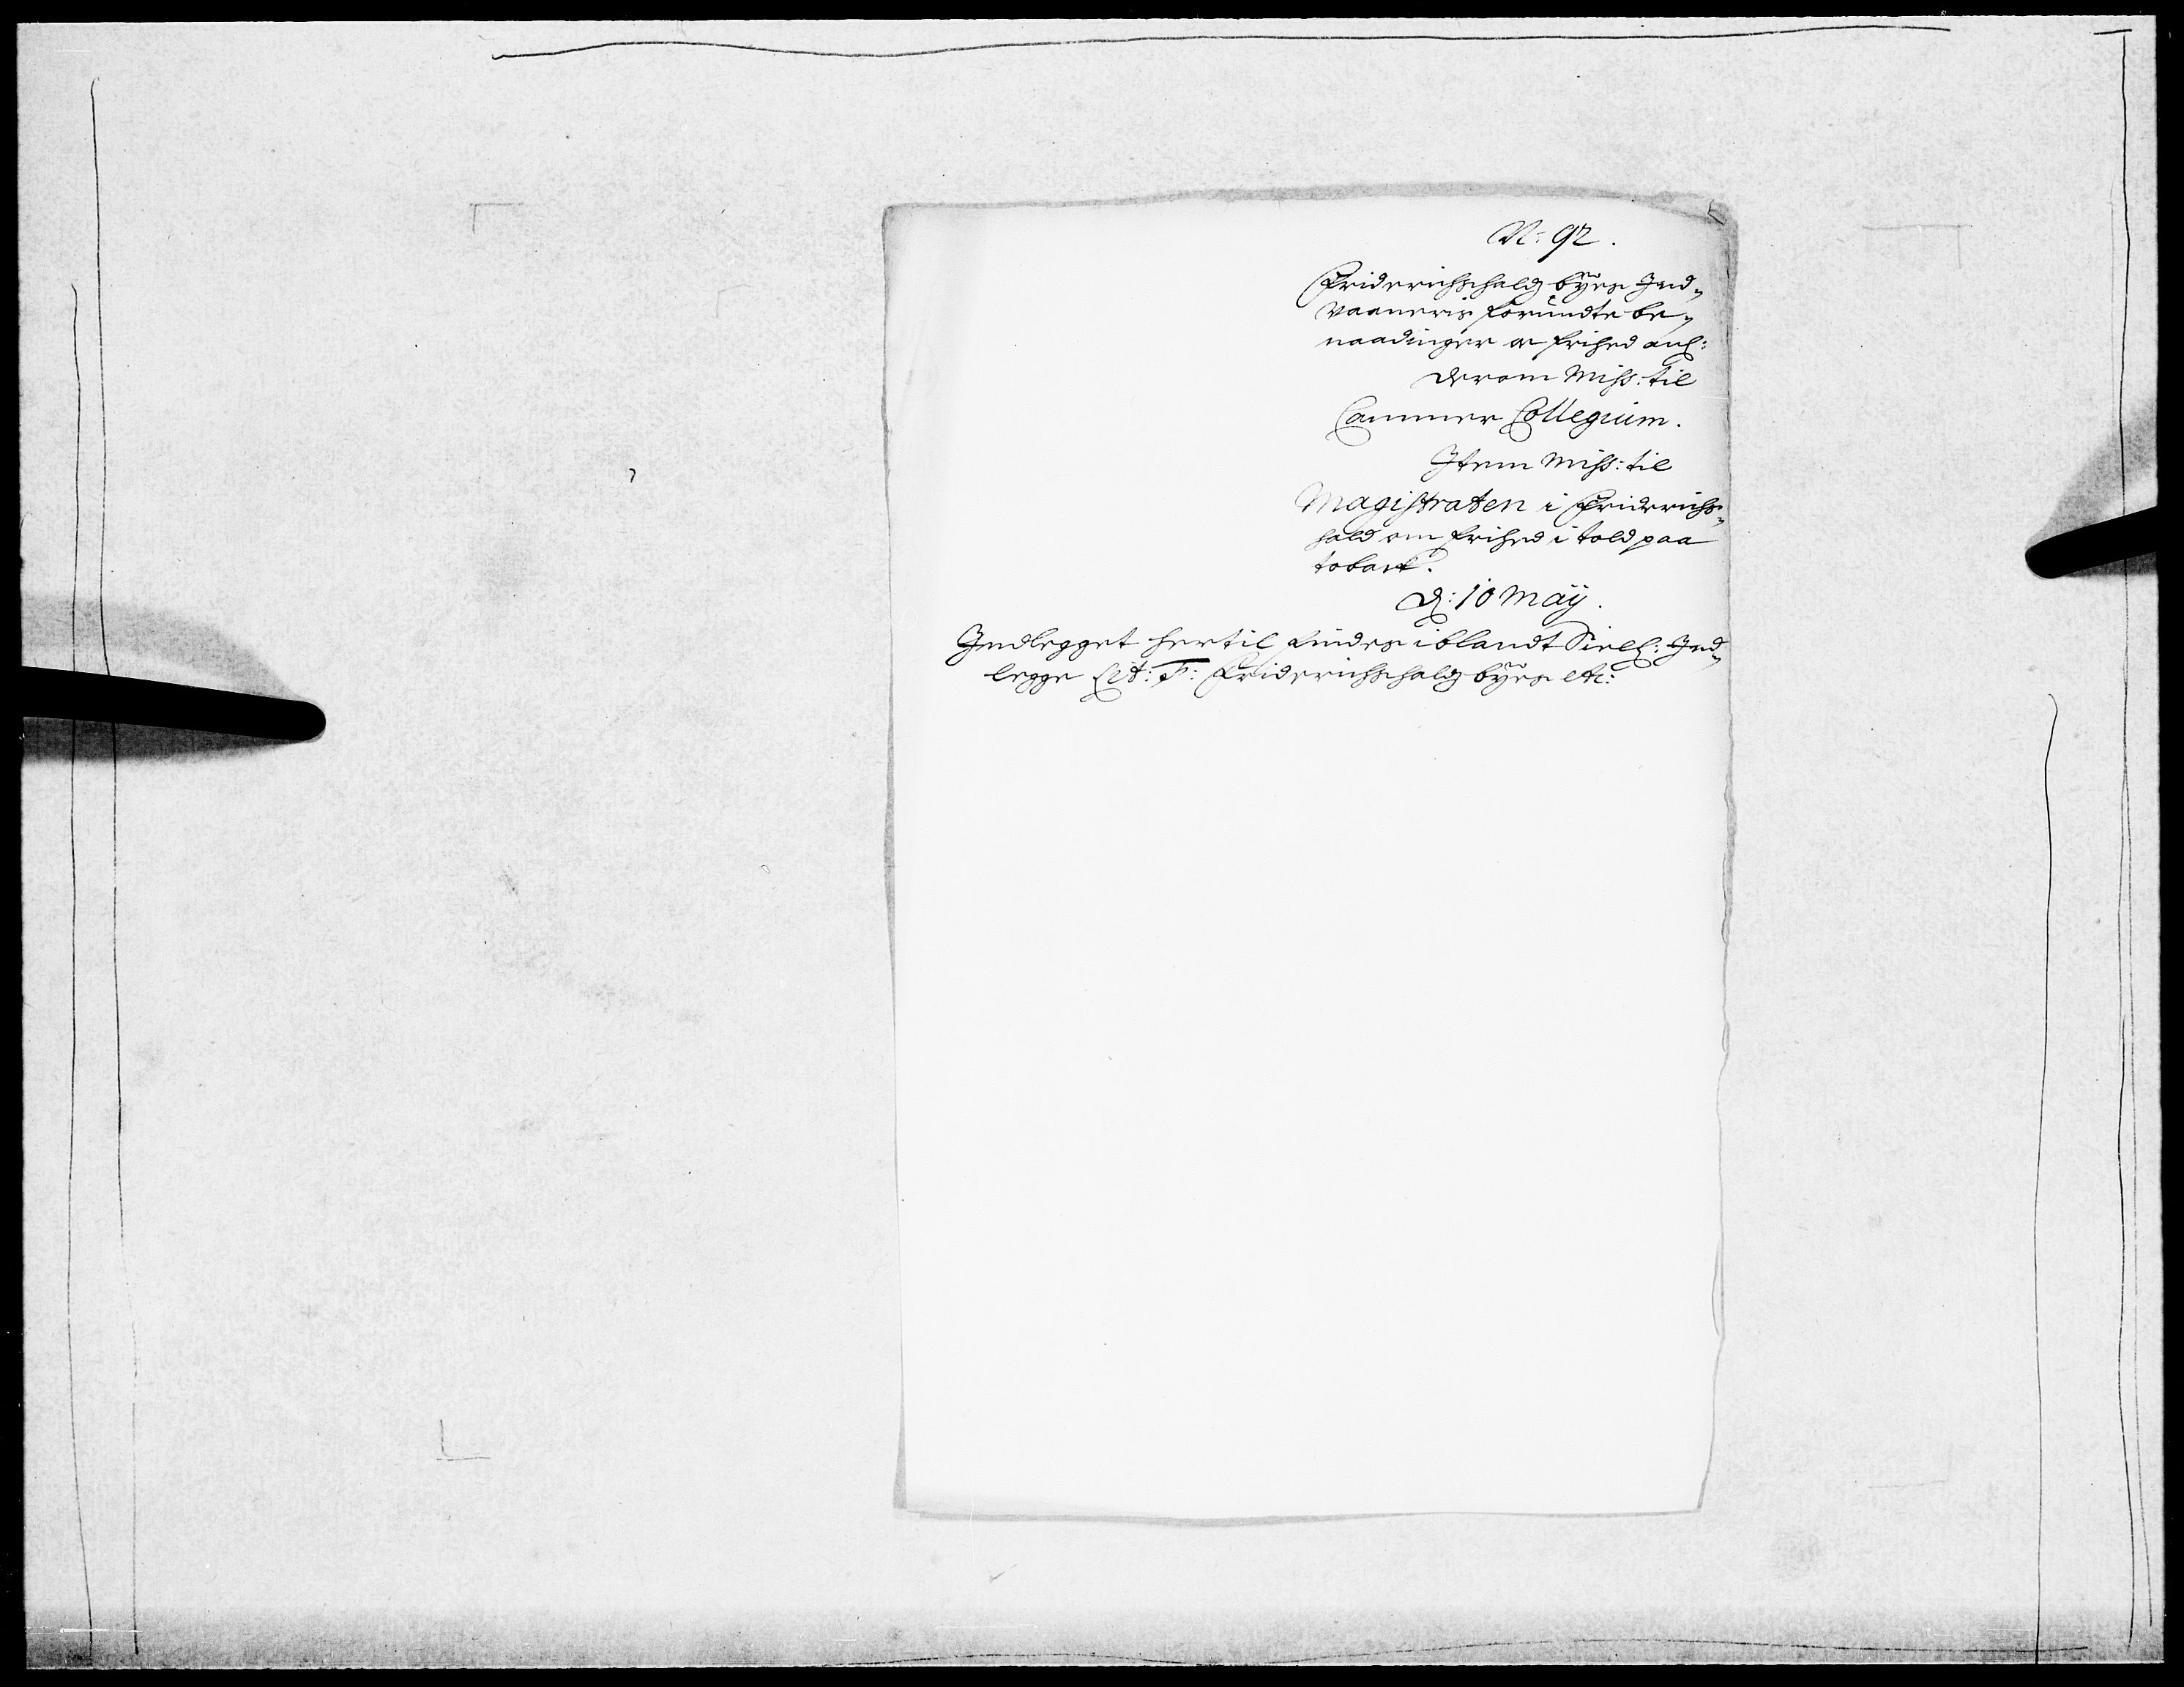 N: 92.
Friderichshalds byes Ind-
vaaneris forundte be-
naadinger er frihed anl:
derom Miss: til
Cammer Collegium.
Item Miss: til
Magistraten i Friderichs-
hald om frihed i told paa
tobak.
D: 10 Maÿ.
Indlegget hertil findes iblandt Siell: Ind-
legge Lit: F: Friderichshalds byes etc: